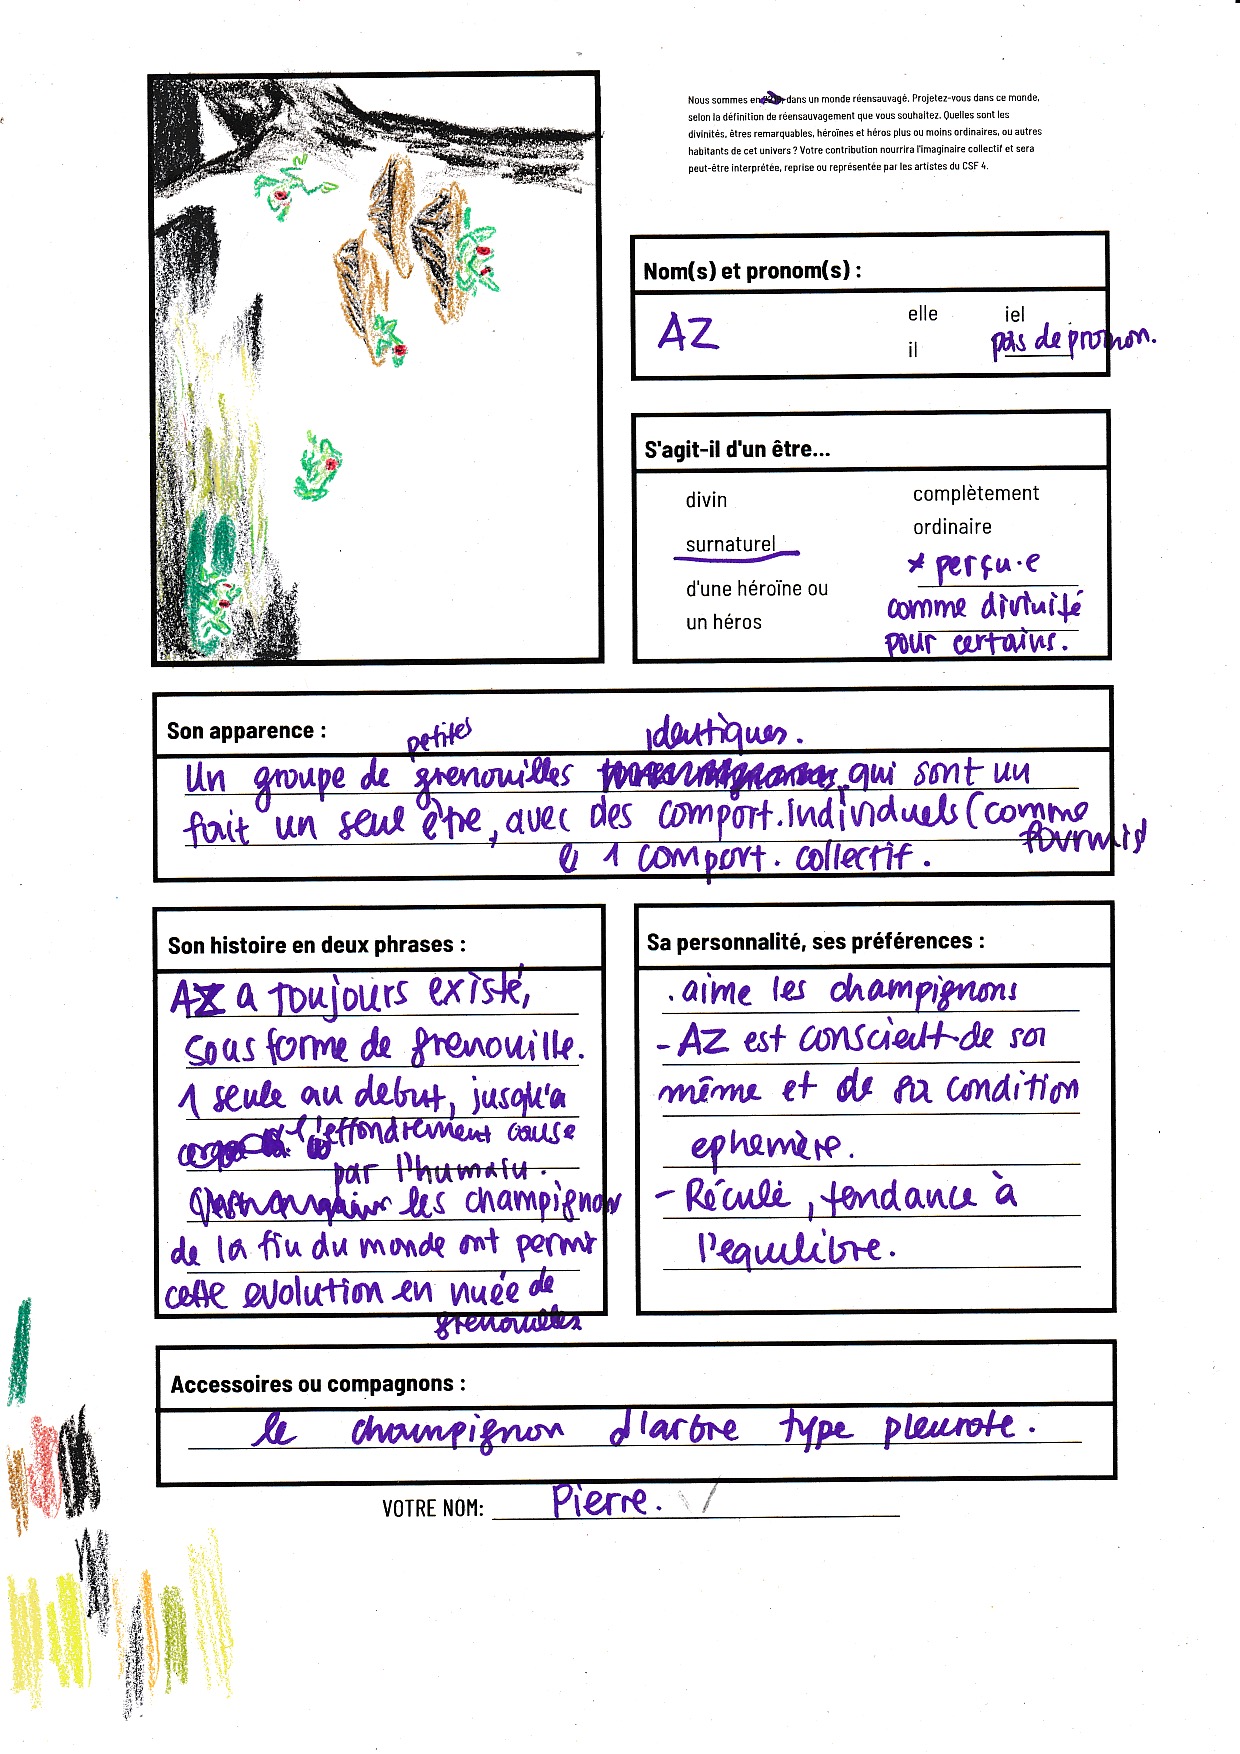 Nous sommes en dans un monde réensauvagé. Projetez-vous dans ce monde,
selon la définition de réensauvagement que vous souhaitez. Quelles sont les
divinités, êtres remarquables, héroïnes et héros plus ou moins ordinaires, ou autres
habitants de cet univers ? Votre contribution nourrira l'imaginaire collectif et sera
peut-être interprétée, reprise ou représentée par les artistes du CSF 4.
Nom(s) et pronom(s) :
AZ
elle iel
il pas de pronon.
S'agit-il d'un être...
divin
surnaturel
d'une héroïne ou
un héros
complètement
ordinaire
* perçu·e
comme divinité
pour certains.
Son apparence :
petites identiques.
Un groupe de grenouilles qui sont un
fait un seul être, avec des comport. individuels (comme
fourmis)
& 1 comport. collectif.
Son histoire en deux phrases :
AZ a toujours existé,
sous forme de grenouille.
1 seule au debut, jusqu'a
l'effondrement cause
par l'humain.
les champignons
de la fin du monde ont permis
cette evolution en nuée de
grenouilles
Sa personnalité, ses préférences :
. aime les champignons
- AZ est conscient de soi
même et de sa condition
ephemère.
- Réculé, tendance à
l'equilibre.
Accessoires ou compagnons :
le champignon d'arbre type pleurote.
VOTRE NOM: Pierre.